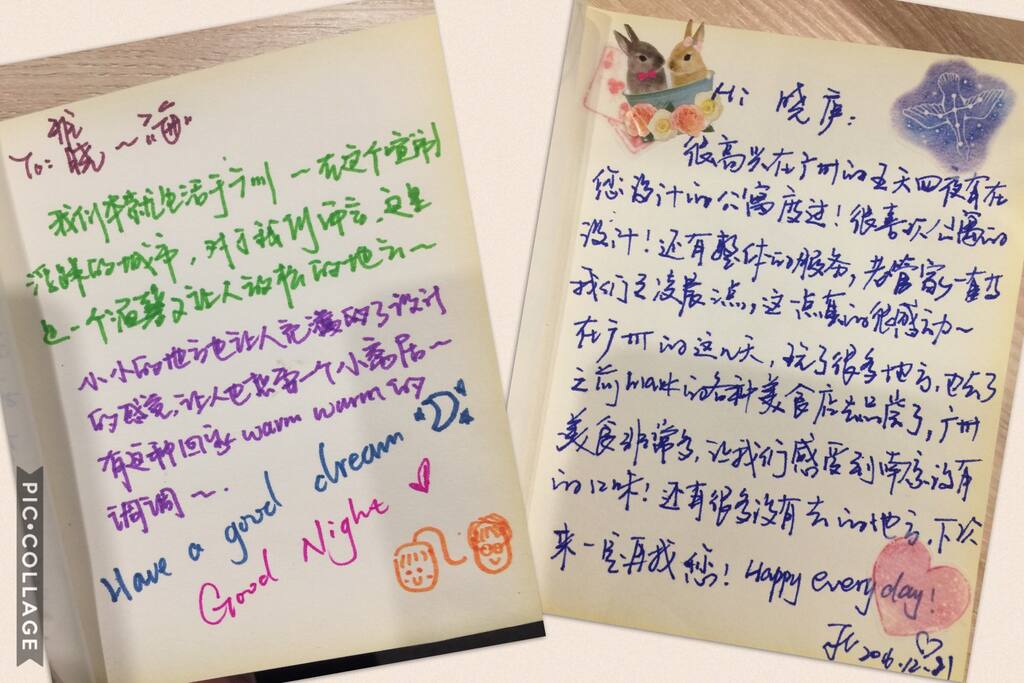 To: 晓~
我们本就生活于广州~在这个喧闹
浮躁的城市,对于我们而言,这里
是一个温馨又让人放松的地方~
小小的地方也让人充满的了设计
的感觉,让人也想要一个小窝居~
有这种回家warm warm的
调调~.
Have a good dream "D"
Good Night
Hi 晓庐:
很高兴在广州的五天四夜有在
您设计的公寓度过!很喜欢公寓的
设计!还有整体的服务,老管家一直等
我们到凌晨2点,这一点真的很感动~
在广州的这几天,玩了很多地方,也去了
之前mark的各种美食店去品尝了,广州
美食非常多,让我们感受到南京没有
的口味!还有很多没有去的地方,下次
来一定再找您!Happy every day!
2016.12.21
PIC•COLLAGE